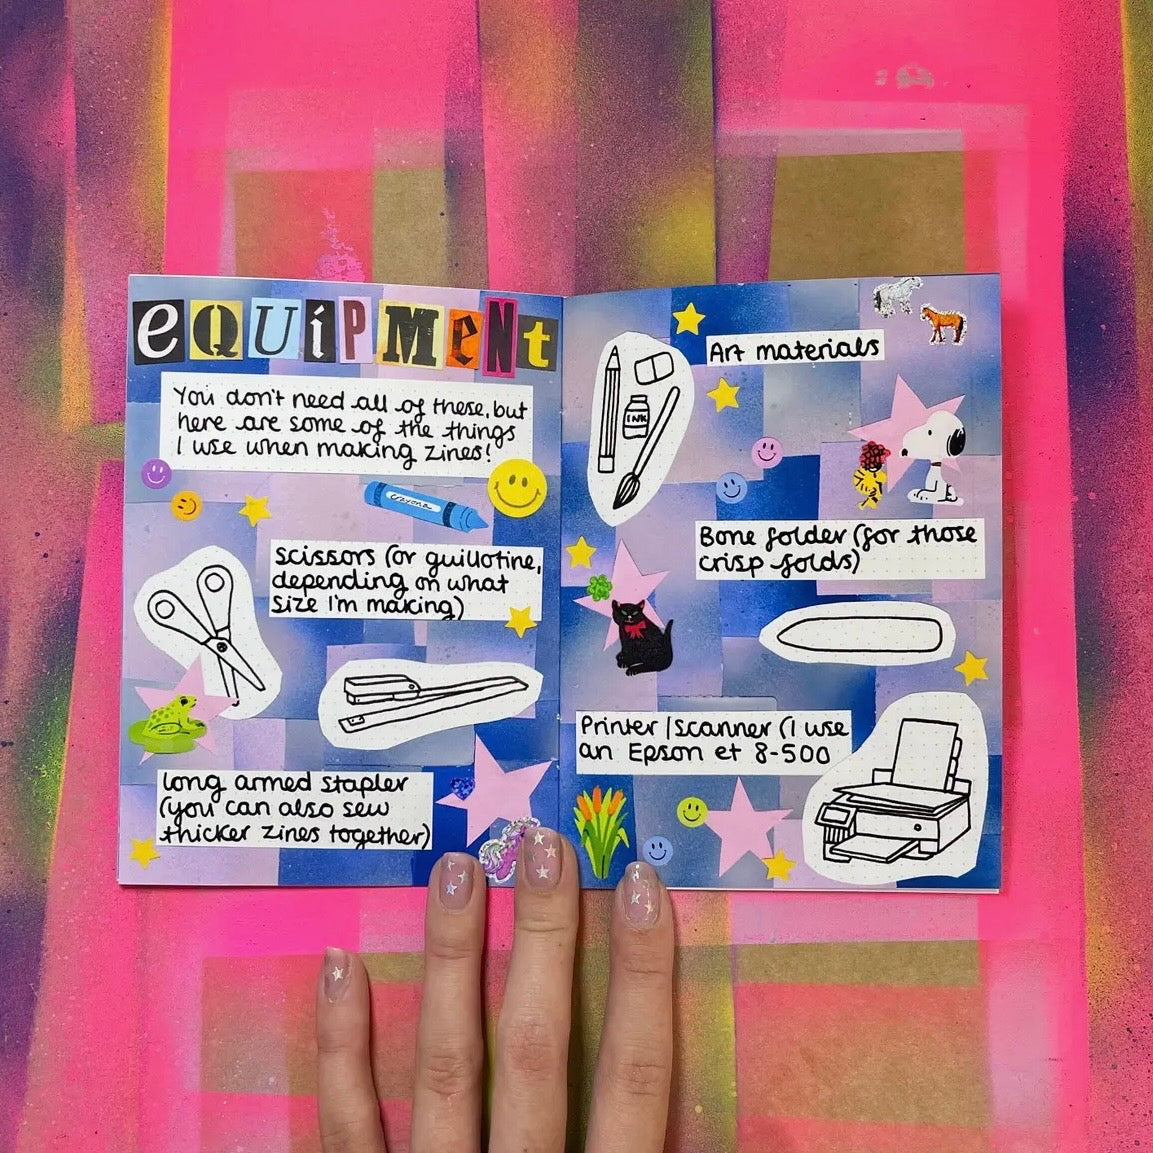 eQUiPMeNt
You don't need all of these, but
here are some of the things
I use when making zines!
crayona
scissors (or guillotine,
depending on what
size I'm making)
long armed stapler
(you can also sew
thicker zines together)
Art materials
INK
Bone folder (for those
crisp folds)
Printer/scanner (I use
an Epson et 8-500